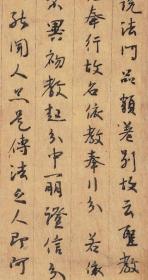 說法門品類差別故云聖教
奉行故名依教奉行分若依
異初教起分中一明證信
能聞人只是傳法之人即阿